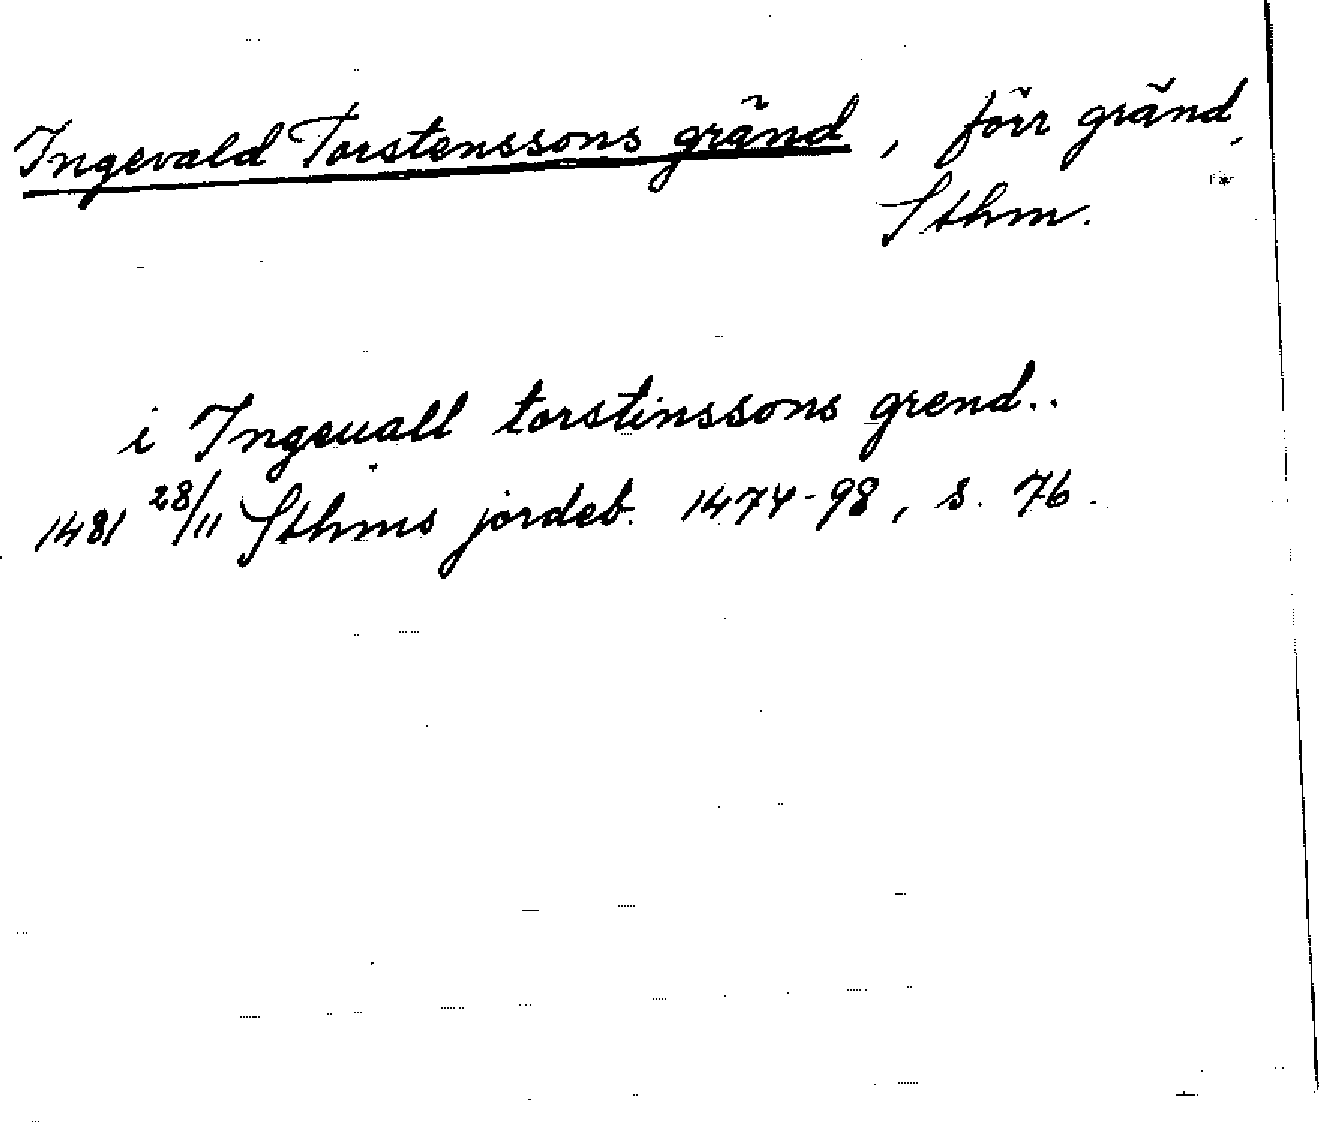 Ingevald Torstenssons gränd, förr gränd,
Sthm.
i Ingeuall torstinssons grend..
1481 28/11 Sthms jordeb. 1474-98, s. 76.